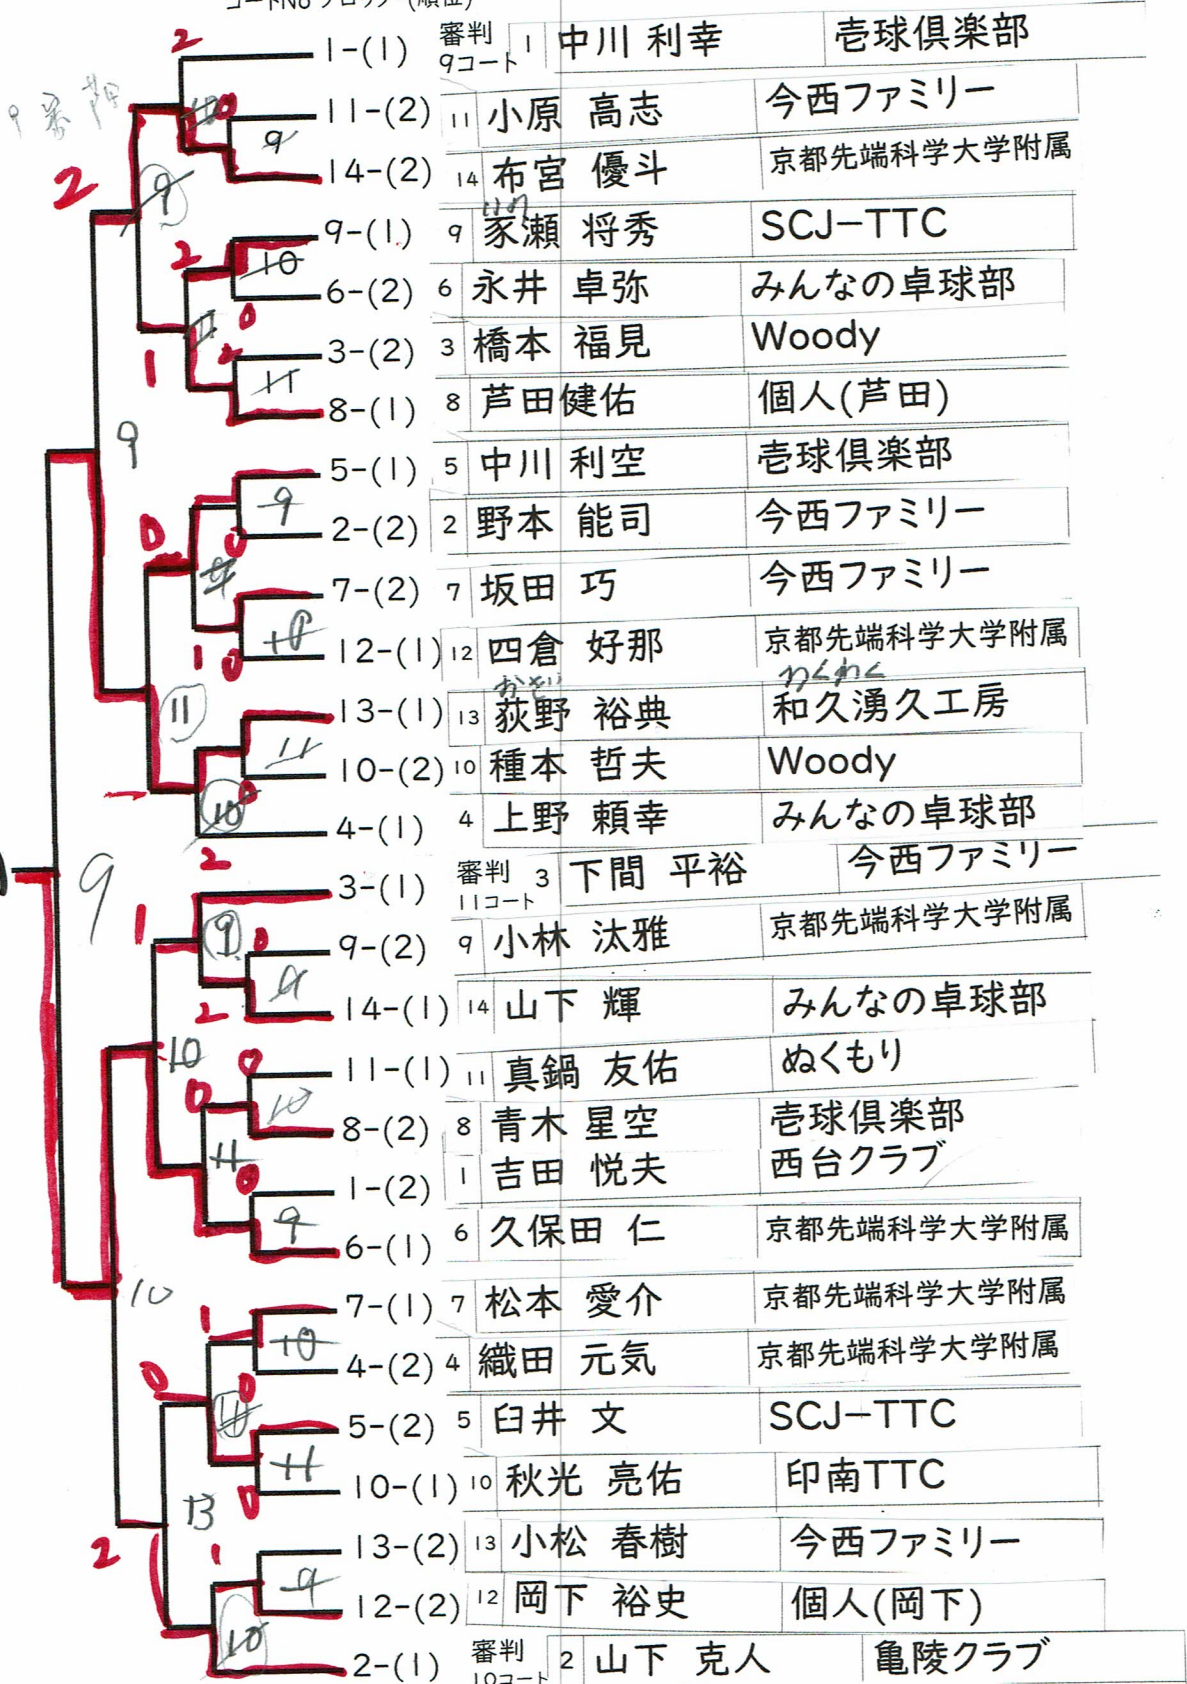 コートNo ブロック (順位)
1-(1) 審判 9コート 1 中川 利幸 壱球倶楽部
11-(2) 11 小原 高志 今西ファミリー
14-(2) 14 布宮 優斗 京都先端科学大学附属
9-(1) 9 家瀬 将秀 SCJ-TTC
6-(2) 6 永井 卓弥 みんなの卓球部
3-(2) 3 橋本 福見 Woody
8-(1) 8 芦田健佑 個人(芦田)
5-(1) 5 中川 利空 壱球倶楽部
2-(2) 2 野本 能司 今西ファミリー
7-(2) 7 坂田 巧 今西ファミリー
12-(1) 12 四倉 好那 京都先端科学大学附属
わくわく
13-(1) 13 荻野 裕典 和久湧久工房
10-(2) 10 種本 哲夫 Woody
4-(1) 4 上野 頼幸 みんなの卓球部
3-(1) 審判 11コート 3 下間 平裕 今西ファミリー
9-(2) 9 小林 汰雅 京都先端科学大学附属
14-(1) 14 山下 輝 みんなの卓球部
11-(1) 11 真鍋 友佑 ぬくもり
8-(2) 8 青木 星空 壱球倶楽部
1-(2) 1 吉田 悦夫 西台クラブ
6-(1) 6 久保田 仁 京都先端科学大学附属
7-(1) 7 松本 愛介 京都先端科学大学附属
4-(2) 4 織田 元気 京都先端科学大学附属
5-(2) 5 臼井 文 SCJ-TTC
10-(1) 10 秋光 亮佑 印南TTC
13-(2) 13 小松 春樹 今西ファミリー
12-(2) 12 岡下 裕史 個人(岡下)
2-(1) 審判 10コート 2 山下 克人 亀陵クラブ